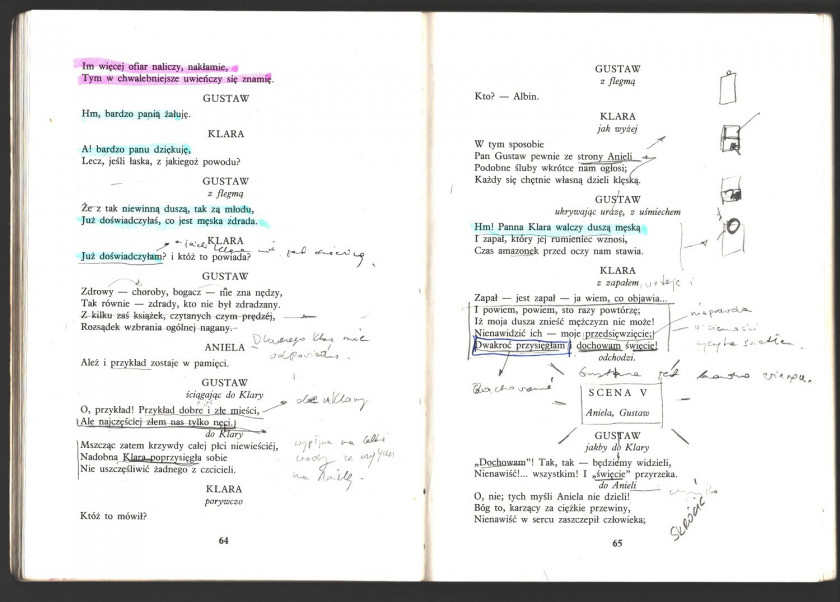 Im więcej ofiar naliczy, nakłamie,
Tym w chwalebniejsze uwieńczy się znamię.
GUSTAW
Hm, bardzo panią żałuję.
KLARA
A! bardzo panu dziękuję,
Lecz, jeśli łaska, z jakiegoż powodu?
GUSTAW
z flegmą
Że z tak niewinną duszą, tak za młodu,
Już doświadczyłaś, co jest męska zdrada.
KLARA
Już doświadczyłam? i któż to powiada?
GUSTAW
Zdrowy — choroby, bogacz — nie zna nędzy,
Tak równie — zdrady, kto nie był zdradzany.
Z kilku zaś książek, czytanych czym prędzej,
Rozsądek wzbrania ogólnej nagany.
ANIELA
Ależ i przykład zostaje w pamięci.
GUSTAW
ściągając do Klary
O, przykład! Przykład dobre i złe mieści,
Ale najczęściej złem nas tylko nęci.
do Klary
Mszcząc zatem krzywdy całej płci niewieściéj,
Nadobna Klara poprzysięgła sobie
Nie uszczęśliwić żadnego z czcicieli.
KLARA
porywczo
Któż to mówił?
64
GUSTAW
z flegmą
Kto? — Albin.
KLARA
jak wyżej
W tym sposobie
Pan Gustaw pewnie ze strony Anieli
Podobne śluby wkrótce nam ogłosi;
Każdy się chętnie własną dzieli klęską.
GUSTAW
ukrywając urazę, z uśmiechem
Hm! Panna Klara walczy duszą męską
I zapał, który jej rumieniec wznosi,
Czas amazonek przed oczy nam stawia.
KLARA
z zapałem
Zapał — jest zapał — ja wiem, co objawia...
I powiem, powiem, sto razy powtórzę;
Iż moja dusza znieść mężczyzn nie może!
Nienawidzić ich — moje przedsięwzięcie;
Dwakroć przysięgłam i dochowam święcie!
odchodzi.
SCENA V
Aniela, Gustaw
GUSTAW
jakby do Klary
„Dochowam”! Tak, tak — będziemy widzieli,
Nienawiść!... wszystkim! I „święcie” przyrzeka.
do Anieli
O, nie; tych myśli Aniela nie dzieli!
Bóg to, karzący za ciężkie przewiny,
Nienawiść w sercu zaszczepił człowieka;
SKRÓCIĆ
65